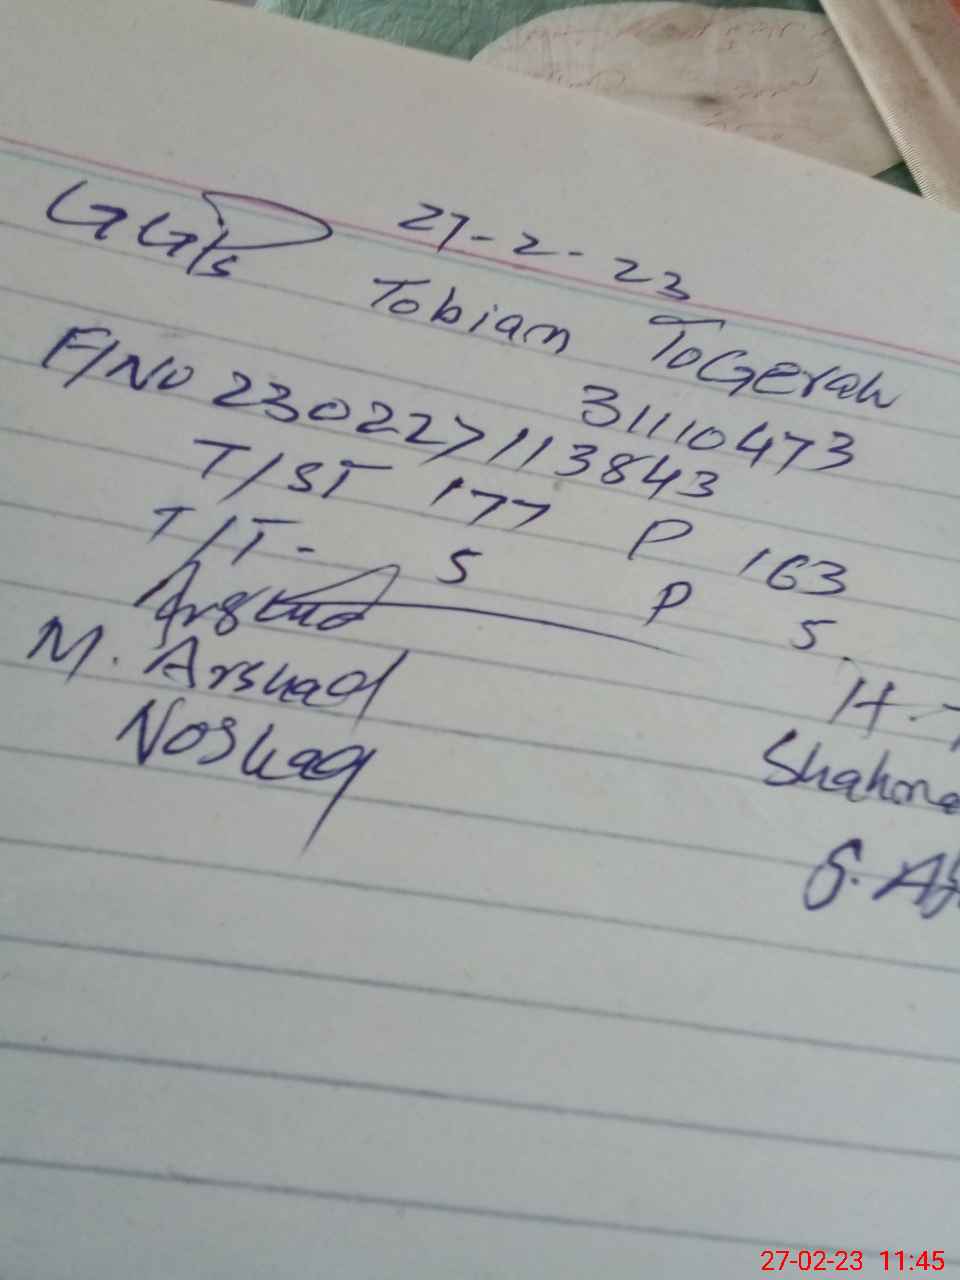 27-2-23
GGPS Tobian ToGerah
31110473
F/NO 230227113843
T/ST 177 P 163
T/T- 5 P 5
Arshad
M. Arshad
Noshaq
H.
Shahna
S. A
27-02-23 11:45